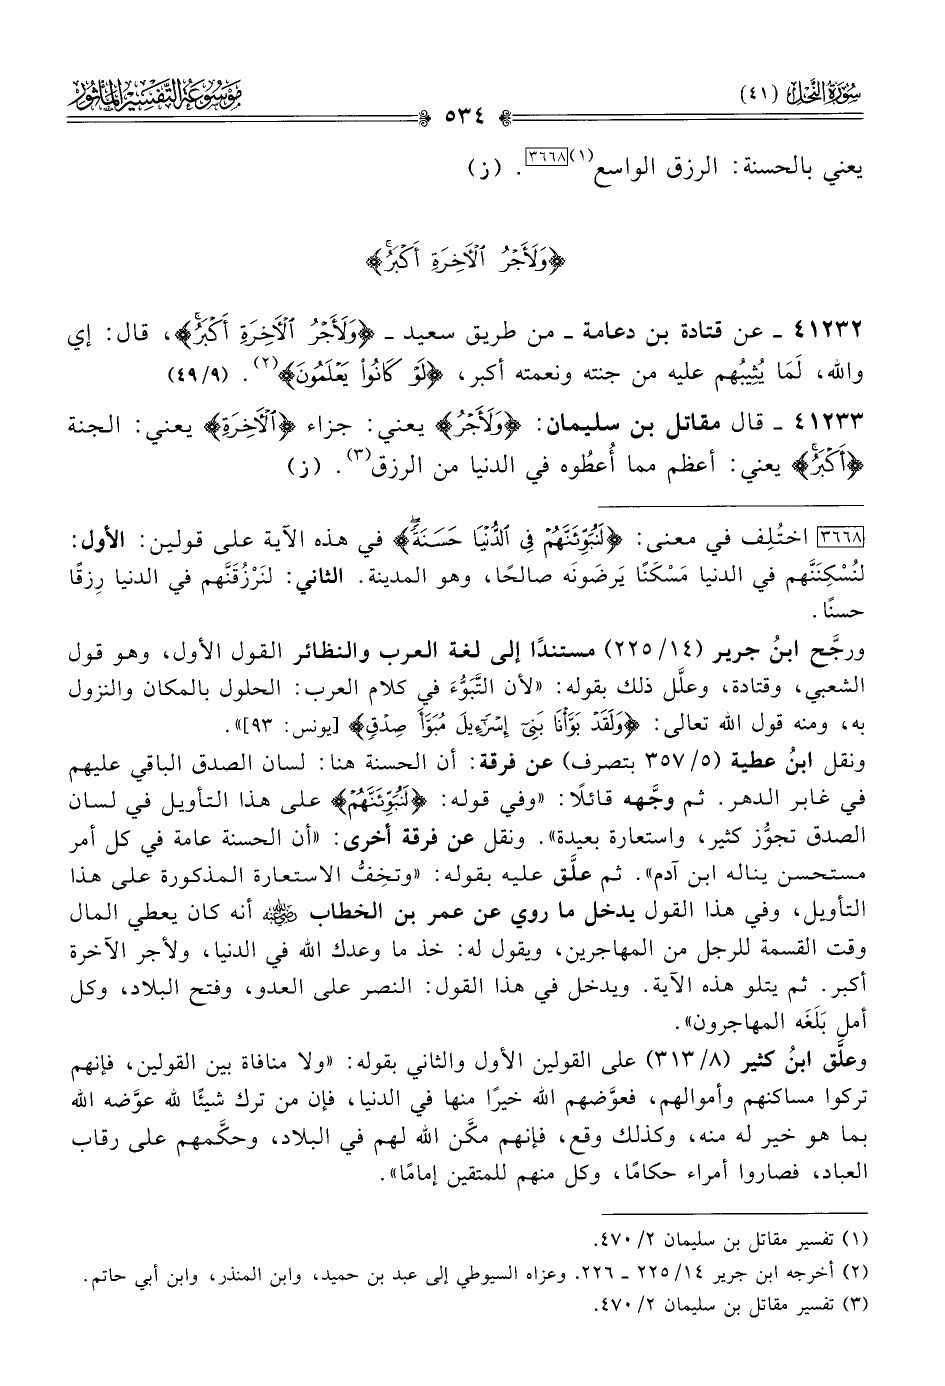 سُورَةُ النَّحْلِ (٤١)
٥٣٤
مَوْسُوعَةُ التَّفْسِيرِ المَأْثُورِ
يعني بالحسنة: الرزق الواسع(١)[٣٦٦٨]. (ز)
﴿وَلَأَجْرُ ٱلْأَخِرَةِ أَكْبَرُۚ﴾
٤١٢٣٢ ـ عن قتادة بن دعامة ـ من طريق سعيد ـ ﴿وَلَأَجْرُ ٱلْأَخِرَةِ أَكْبَرُۚ﴾، قال: إي
والله، لَمَا يُثِيبُهم عليه من جنته ونعمته أكبر، ﴿لَوْ كَانُوا۟ يَعْلَمُونَ﴾(٢). (٤٩/٩)
٤١٢٣٣ ـ قال مقاتل بن سليمان: ﴿وَلَأَجْرُ﴾ يعني: جزاء ﴿ٱلْأَخِرَةِ﴾ يعني: الجنة
﴿أَكْبَرُۚ﴾ يعني: أعظم مما أُعطُوه في الدنيا من الرزق(٣). (ز)
[٣٦٦٨] اختُلِف في معنى: ﴿لَنُبَوِّئَنَّهُمْ فِى ٱلدُّنْيَا حَسَنَةًۖ﴾ في هذه الآية على قولين: الأول:
لنُسْكِنَنَّهم في الدنيا مَسْكَنًا يَرضَونَه صالحًا، وهو المدينة. الثاني: لنَرْزُقَنَّهم في الدنيا رِزقًا
حسنًا.
ورجَّح ابنُ جرير (٢٢٥/١٤) مستندًا إلى لغة العرب والنظائر القول الأول، وهو قول
الشعبي، وقتادة، وعلَّل ذلك بقوله: «لأن التَّبَوُّءَ في كلام العرب: الحلول بالمكان والنزول
به، ومنه قول الله تعالى: ﴿وَلَقَدْ بَوَّأْنَا بَنِىٓ إِسْرَٰٓءِيلَ مُبَوَّأَ صِدْقٍ﴾ [يونس: ٩٣]».
ونقل ابنُ عطية (٣٥٧/٥ بتصرف) عن فرقة: أن الحسنة هنا: لسان الصدق الباقي عليهم
في غابر الدهر. ثم وجَّهه قائلًا: «وفي قوله: ﴿لَنُبَوِّئَنَّهُمْ﴾ على هذا التأويل في لسان
الصدق تجوُّز كثير، واستعارة بعيدة». ونقل عن فرقة أخرى: «أن الحسنة عامة في كل أمر
مستحسن يناله ابن آدم». ثم علَّق عليه بقوله: «وتخِفُّ الاستعارة المذكورة على هذا
التأويل، وفي هذا القول يدخل ما روي عن عمر بن الخطاب رضي الله عنه أنه كان يعطي المال
وقت القسمة للرجل من المهاجرين، ويقول له: خذ ما وعدك الله في الدنيا، ولأجر الآخرة
أكبر. ثم يتلو هذه الآية. ويدخل في هذا القول: النصر على العدو، وفتح البلاد، وكل
أمل بَلَغَه المهاجرون».
وعلَّق ابنُ كثير (٣١٣/٨) على القولين الأول والثاني بقوله: «ولا منافاة بين القولين، فإنهم
تركوا مساكنهم وأموالهم، فعوَّضهم الله خيرًا منها في الدنيا، فإن من ترك شيئًا لله عوَّضه الله
بما هو خير له منه، وكذلك وقع، فإنهم مكَّن الله لهم في البلاد، وحكَّمهم على رقاب
العباد، فصاروا أمراء حكامًا، وكل منهم للمتقين إمامًا».
(١) تفسير مقاتل بن سليمان ٤٧٠/٢.
(٢) أخرجه ابن جرير ٢٢٥/١٤ ـ ٢٢٦. وعزاه السيوطي إلى عبد بن حميد، وابن المنذر، وابن أبي حاتم.
(٣) تفسير مقاتل بن سليمان ٤٧٠/٢.